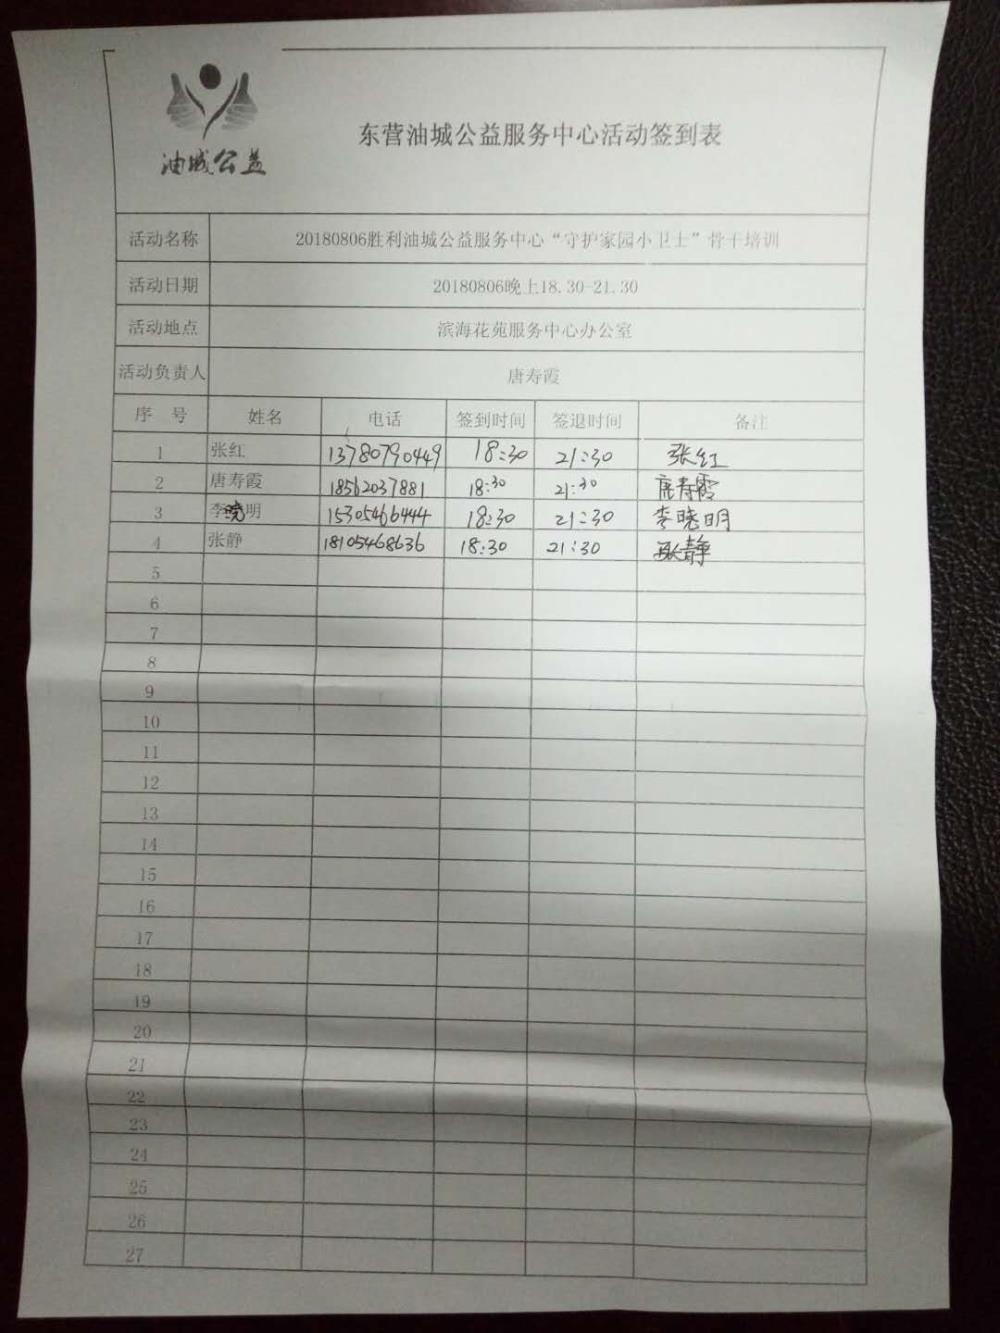 油城公益
东营油城公益服务中心活动签到表
活动名称 20180806胜利油城公益服务中心“守护家园小卫士”骨干培训
活动日期 20180806晚上18.30-21.30
活动地点 滨海花苑服务中心办公室
活动负责人 唐寿霞
序 号 姓名 电话 签到时间 签退时间 备注
1 张红 13780790449 18:30 21:30 张红
2 唐寿霞 18562037881 18:30 21:30 唐寿霞
3 李晓明 15305466444 18:30 21:30 李晓明
4 张静 18105468636 18:30 21:30 张静
5
6
7
8
9
10
11
12
13
14
15
16
17
18
19
20
21
22
23
24
25
26
27